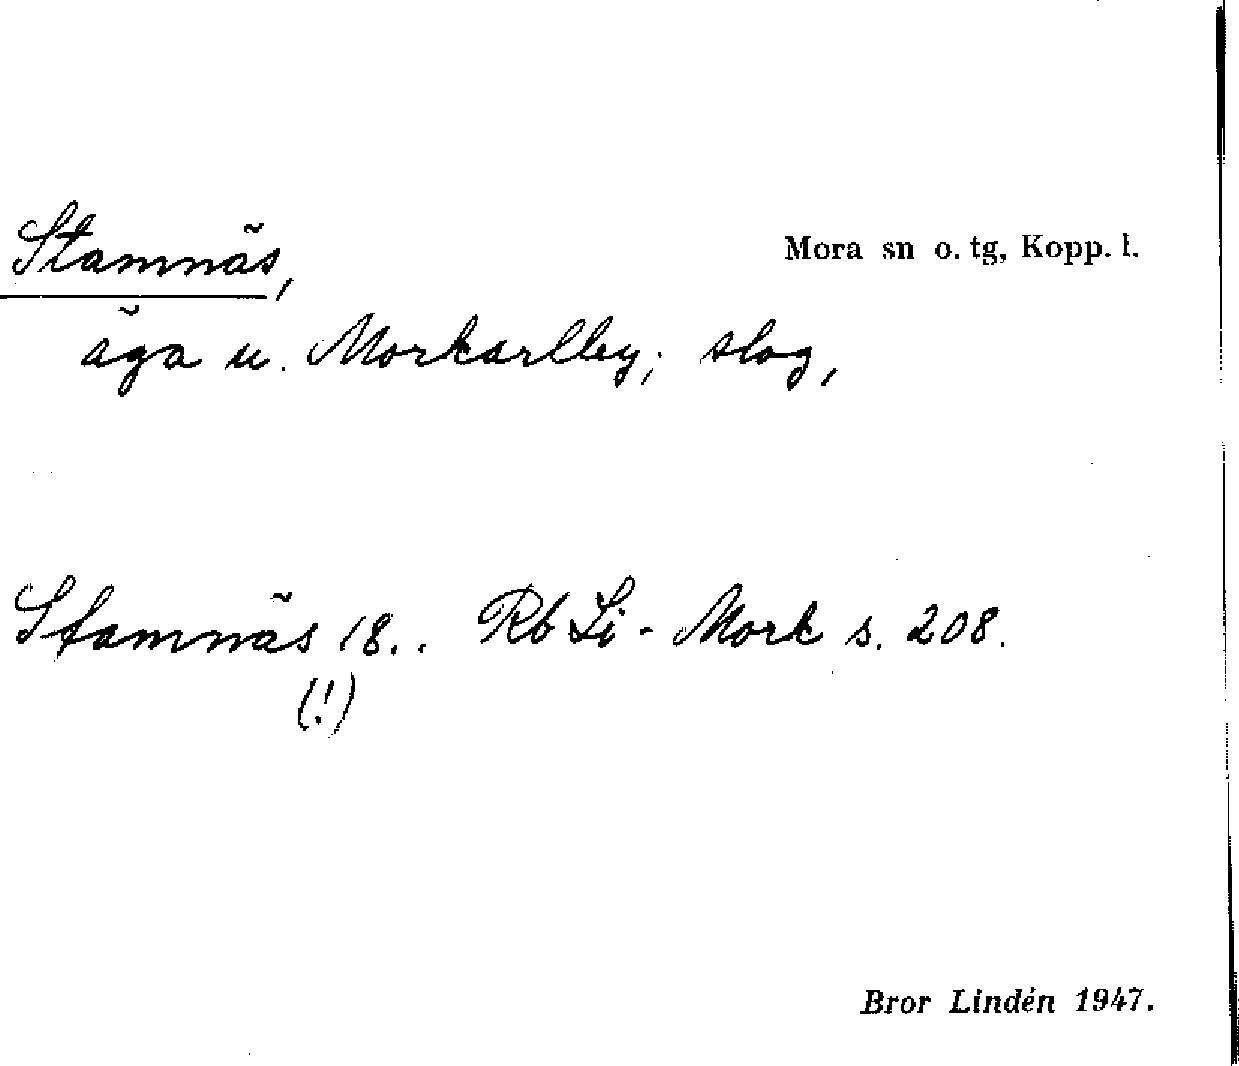 Stamnäs,
Mora sn o. tg, Kopp. l.
äga u. Morkarlby; slog,
Stamnäs 18.. Rb Li - Mork s. 208.
(!)
Bror Lindén 1947.